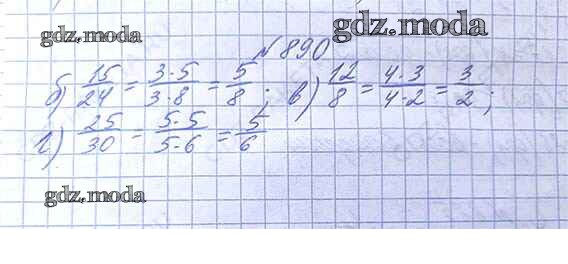 gdz.moda
gdz.moda
№890
б) 15/24 = 3·5/3·8 = 5/8; в) 12/8 = 4·3/4·2 = 3/2;
г) 25/30 = 5·5/5·6 = 5/6
gdz.moda
gdz.moda